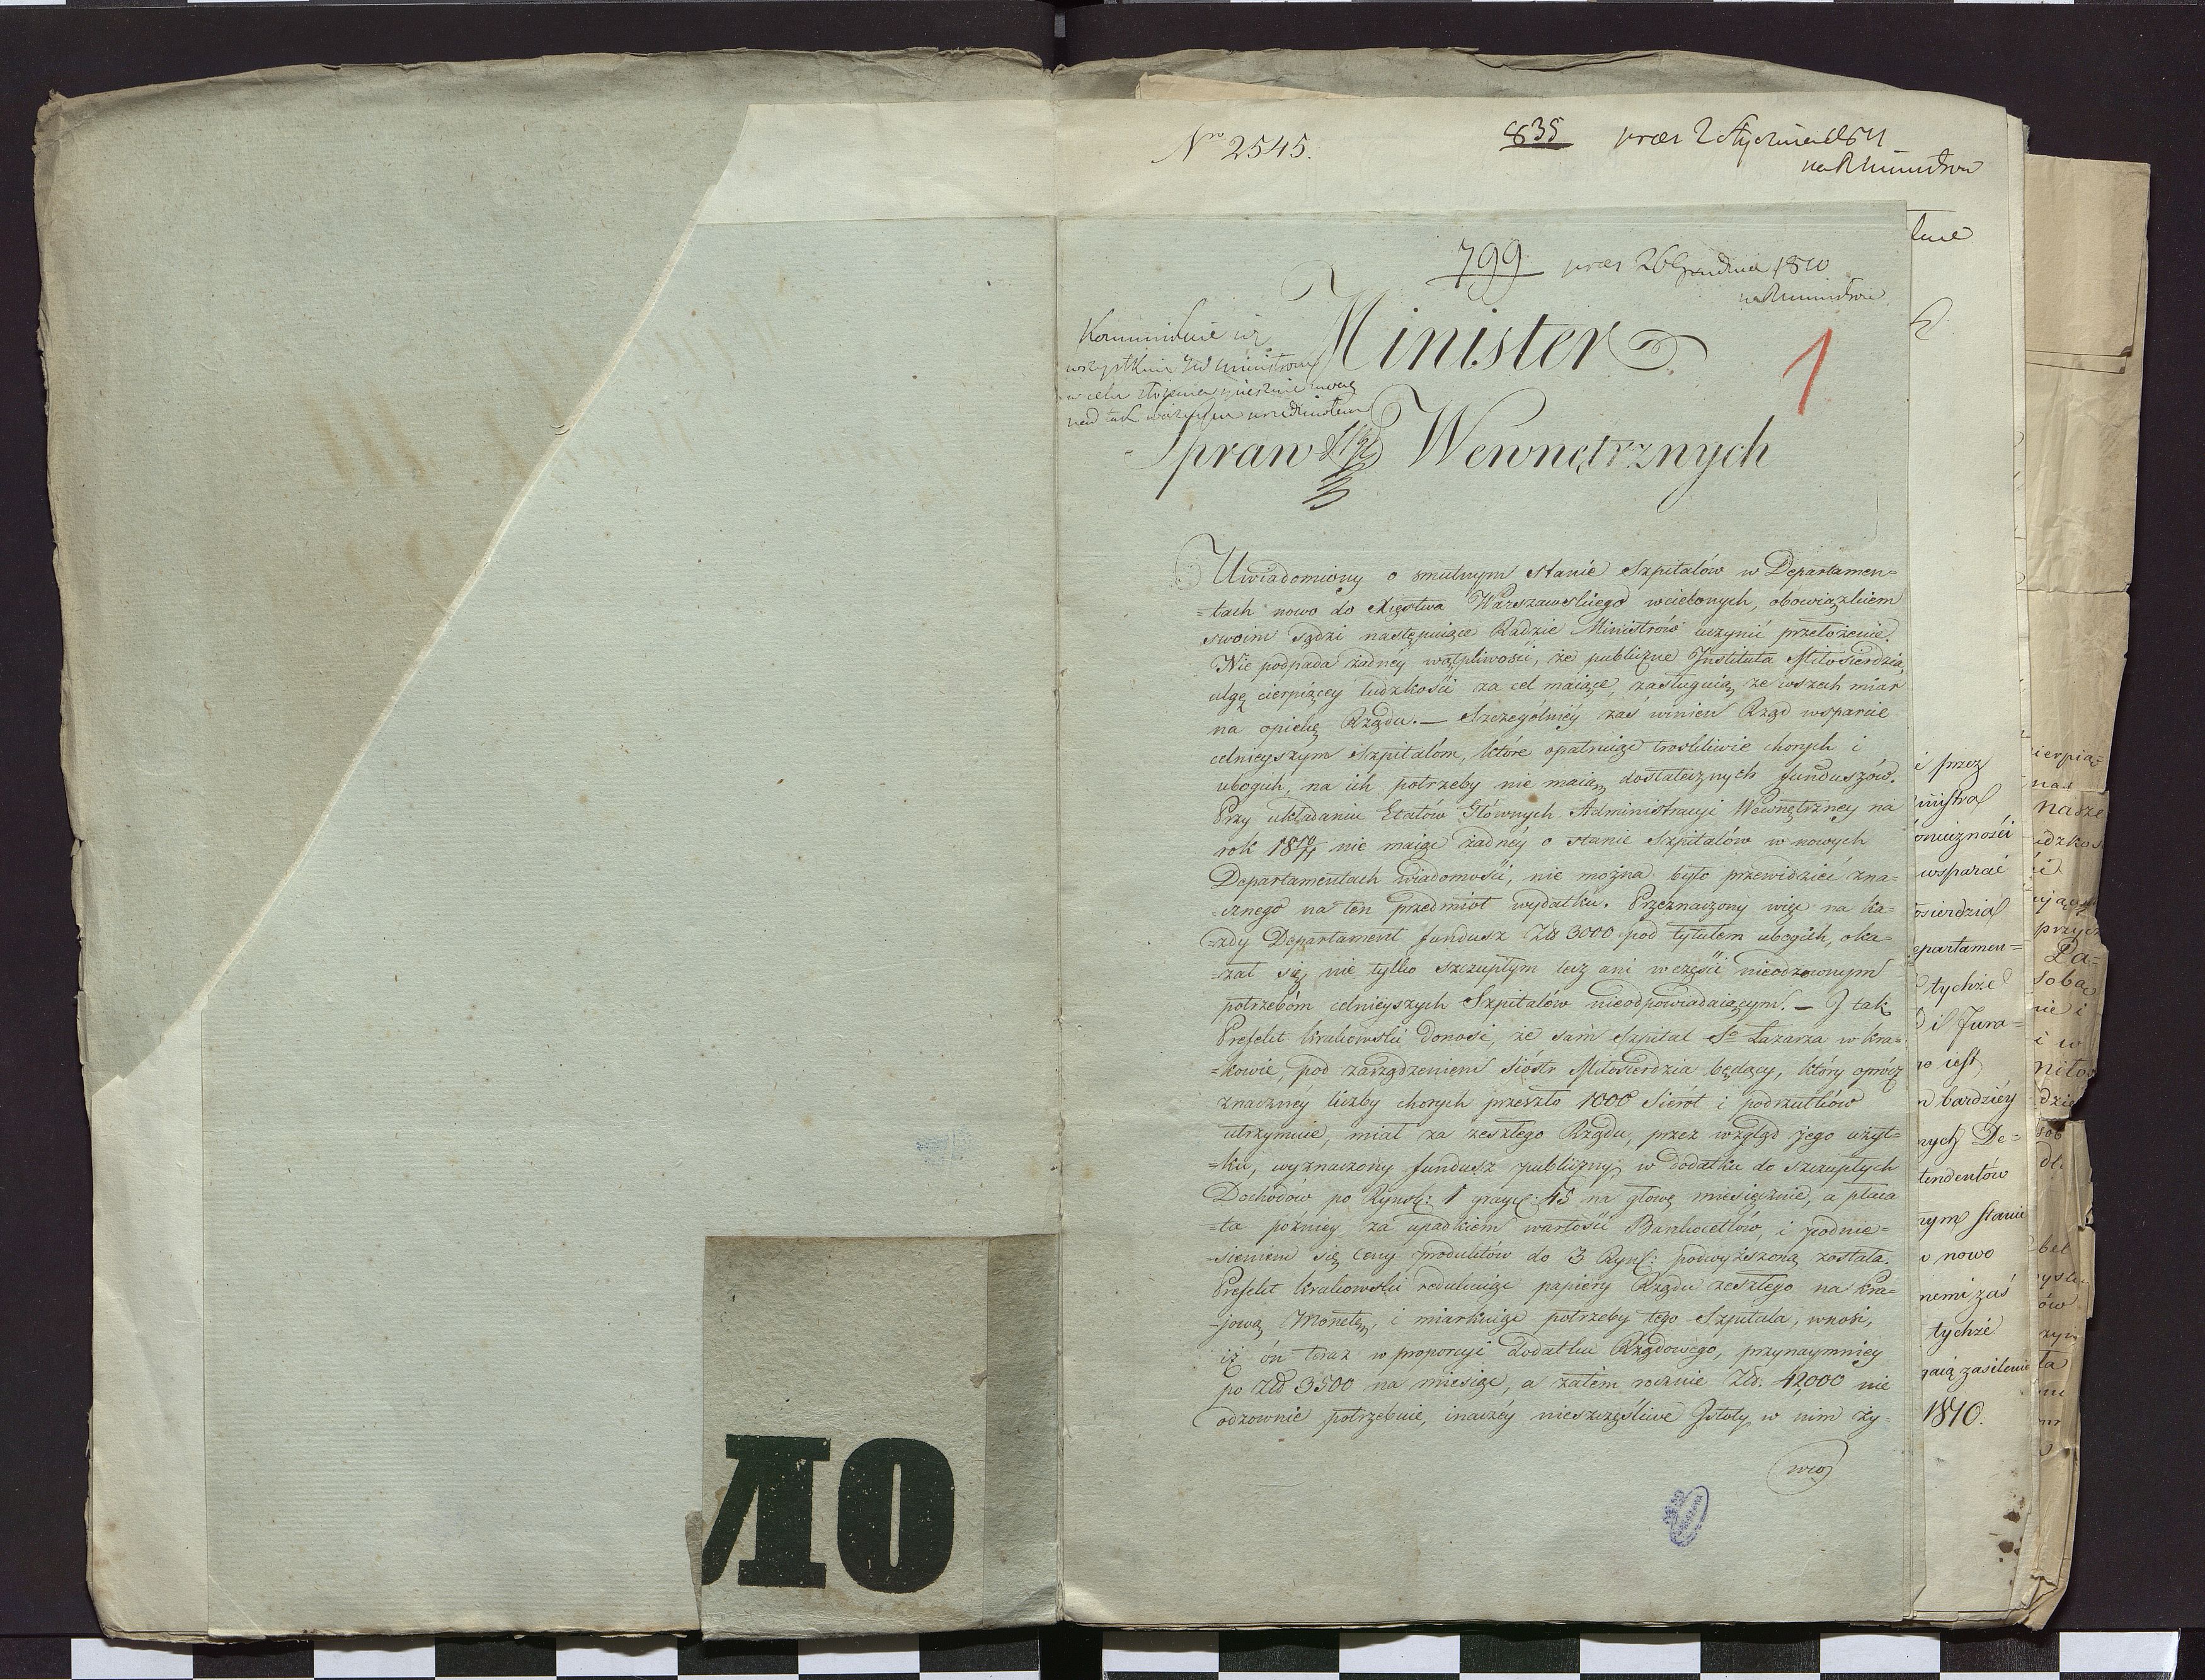 Nro 2545.
835 præs 2 Stycznia 1811
na R Ministrów
799 præs 26 Grudnia 1810
na R Ministrów
Minister
Spraw Wewnętrznych
1
Kommunikuie się
wszystkim JW Ministrom
w celu
nad tak ważnym przedmiotem
Uwiadomiony o smutnym stanie Szpitalów w Departamen=
=tach nowo do Xięstwa Warszawskiego wcielonych, obowiązkiem
swoim sądzi następuiące Radzie Ministrów uczynić przełożenie.
Nie podpada żadney wątpliwości, że publiczne Instituta Miłosierdzia,
ulgę cierpiącey ludzkości za cel maiące, zasługuią ze wszech miar
na opiekę Rządu. — Szczególniéy zaś winien Rząd wsparcie
celnieyszym Szpitalóm, które opatruiąc troskliwie chorych i
ubogich, na ich potrzeby nie maią dostatecznych funduszów.
Przy układaniu Etatów Głównych Administracyi Wewnętrzney na
rok 1810/11 nie maiąc żadnéy o stanie Szpitalów w nowych
Departamentach wiadomości, nie można było przewidzieć zna=
=cznego na ten przedmiot wydatku. Przeznaczony więc na ka=
=żdy Departament fundusz Złł 3000 pod tytułem ubogich, oka=
=zał się nie tylko szczupłym lecz ani w części nieodzownym
potrzebóm celnieyszych Szpitalów nieodpowiadaiącym. — I tak
Prefekt Krakowski donosi, że sam Szpital Sgo Łazarza w Kra=
=kowie, pod zarządzeniem Sióstr Miłosierdzia będący, który oprócz
znacznéy liczby chorych przeszło 1000 Sierót i podrzutków
utrzymuie, miał za zeszłego Rządu, przez wzgląd jego użyt=
=ku, wyznaczony fundusz publiczny w dodatku do szczupłych
Dochodów po Ryńsk: 1 grayc: 45 na głowę miesięcznie, a płaca
=ta późniey za upadkiem wartości Bankocetlów, i podnie=
=sieniem się Ceny produktów do 3 Ryń: podwyższoną została.
Prefekt Krakowski redukuiąc papiery Rządu zeszłego na Kra=
=jową Monetę, i miarkuiąc potrzeby tego Szpitala, wnosi,
iż ón teraz w proporcyi dodatku Rządowego, przynaymniey
po Złł 3500 na miesiąc, a zatém rocznie Złł. 42,000 nie
odzownie potrzebuie, inaczéy nieszczęśliwe Istoty w nim ży=
é przez
ministra
wspierać
osierdzia
epartamen=
tychże
i Jura=
jest
bardziéy
nych De=
tendentów
nym stanie
w nowo
nemi zaś
tychże
gaią zasilenie
1810.
ierpią=
nasze
przyc
soba
nie i
i w